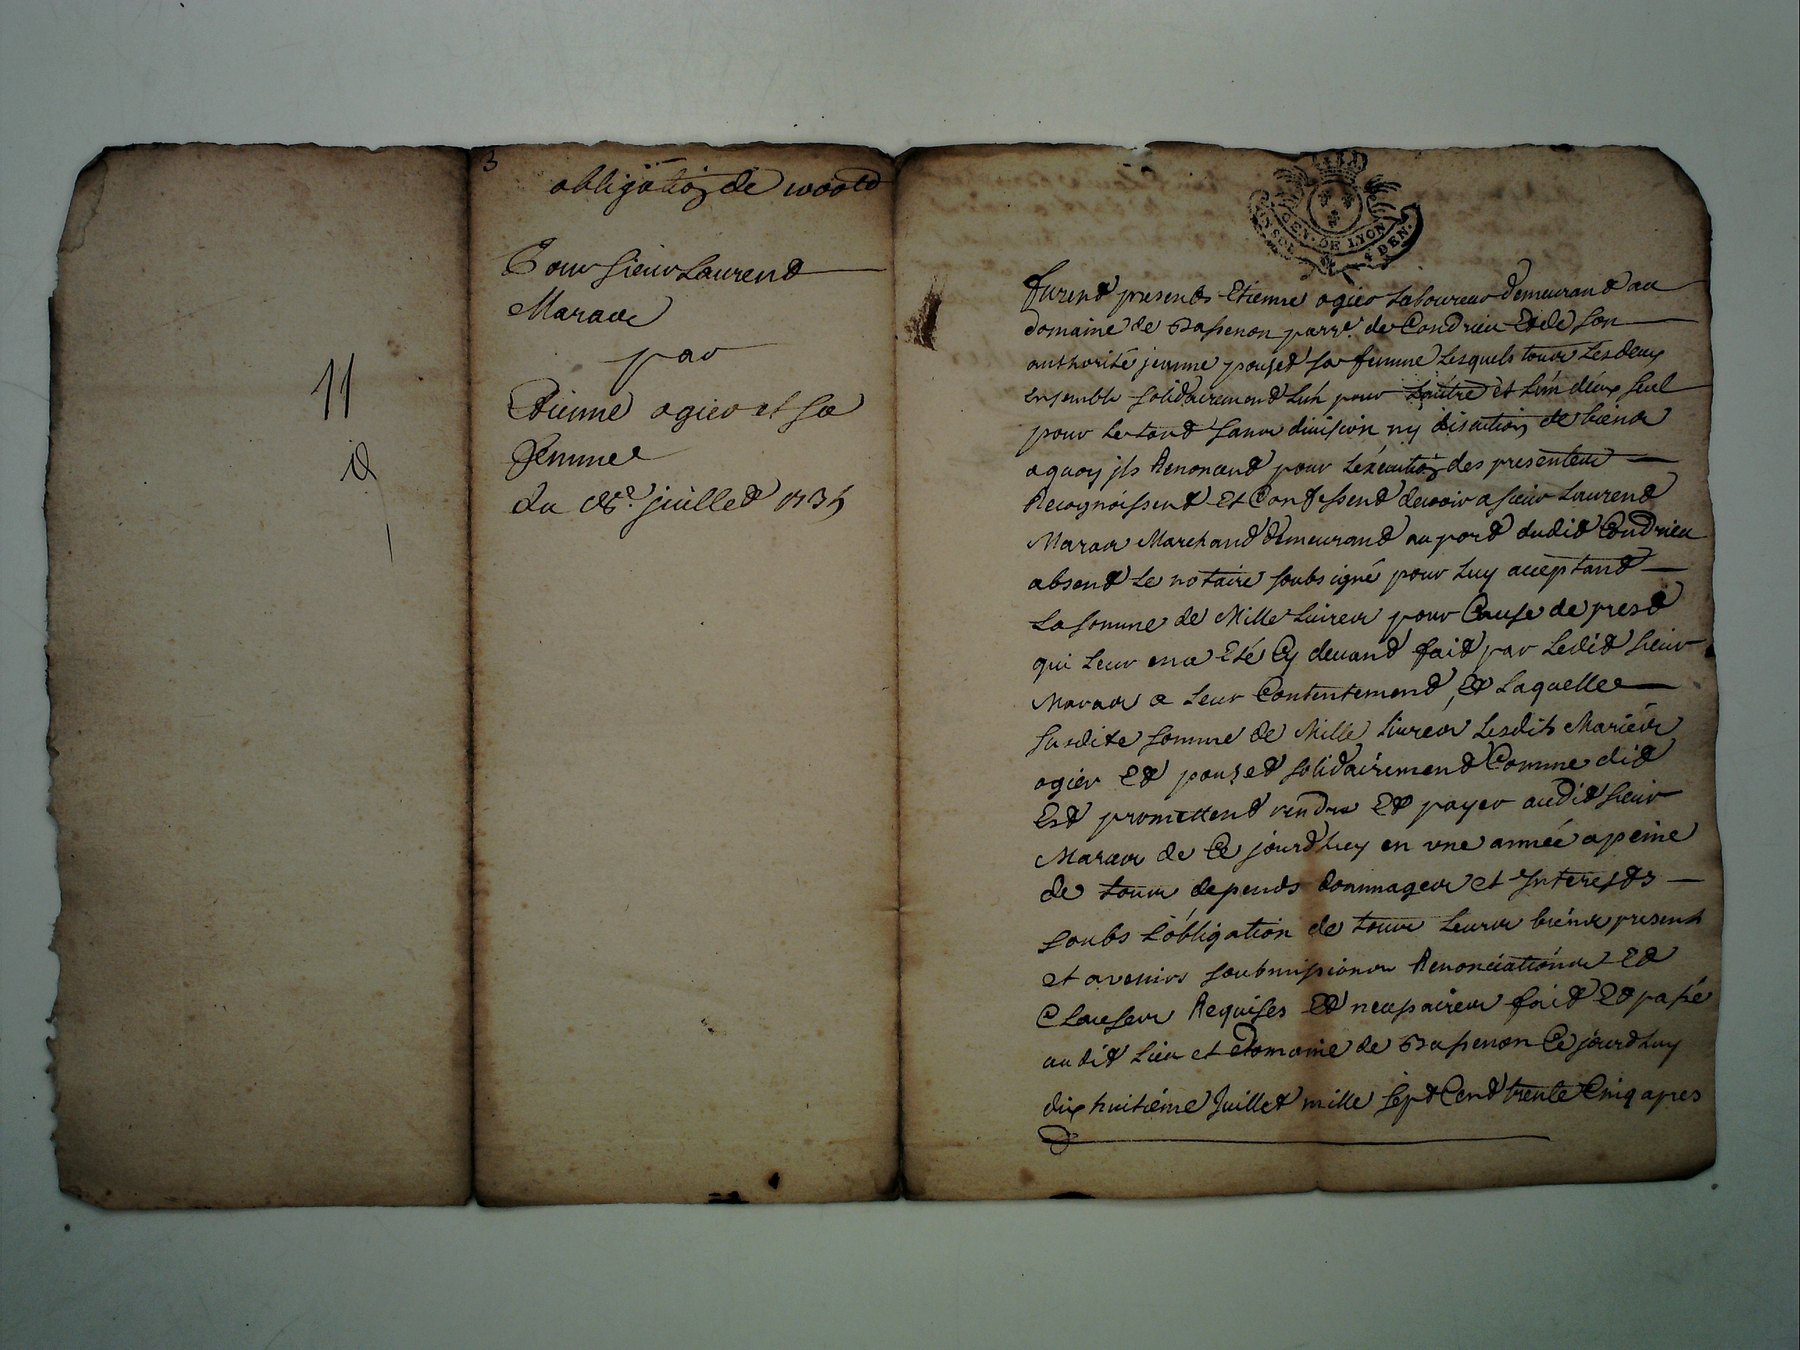 11
d
3
obligation de 1000 ld
Pour sieur Laurend
Maras
par
Etienne ogier et sa
femme
du 18e. juillet 1735
GEN. DE LYON
DEN.
furend presents Etienne ogier Laboureur demeurand au
domaine de Bassenon parre. de Condrieu Et de son
authorité jeanne pouzet sa femme Lesquels tous Les deux
ensemble solidairemend L'un pour L'autre et L'un d'eux seul
pour Le toud sans division ny discution de biens
a quoy jls Renonend pour L'éxecution des presentes
Recognoissend Et Confessend devoir a sieur Laurend
Maras Marchand demeurand au pord dudit Condrieu
absend Le notaire soubsigné pour Luy acceptand
La somme de Mille Livres pour Cause de presd
qui Leur en a Eté Cy devand faid par Ledid sieur
Maras a Leur Contentemend, Ed Laquelle
susdite somme de Mille Livres Lesdits Mariés
ogier Ed pouzed solidairemend Comme did
Esd promettend rendre Ed payer audid sieur
Maras de Ce jourdhuy en une année a peine
de tous depends dommages et Interests
soubs L'obligation de tous Leurs biens presents
et avenirs soubmissions Renonciations Ed
Clauses Requises Ed necessaires faid Ed passé
audid Lieu et domaine de Bassenon Ce jourdhuy
dix huitiéme Juilled mille sepd Cend trente Cinq apres